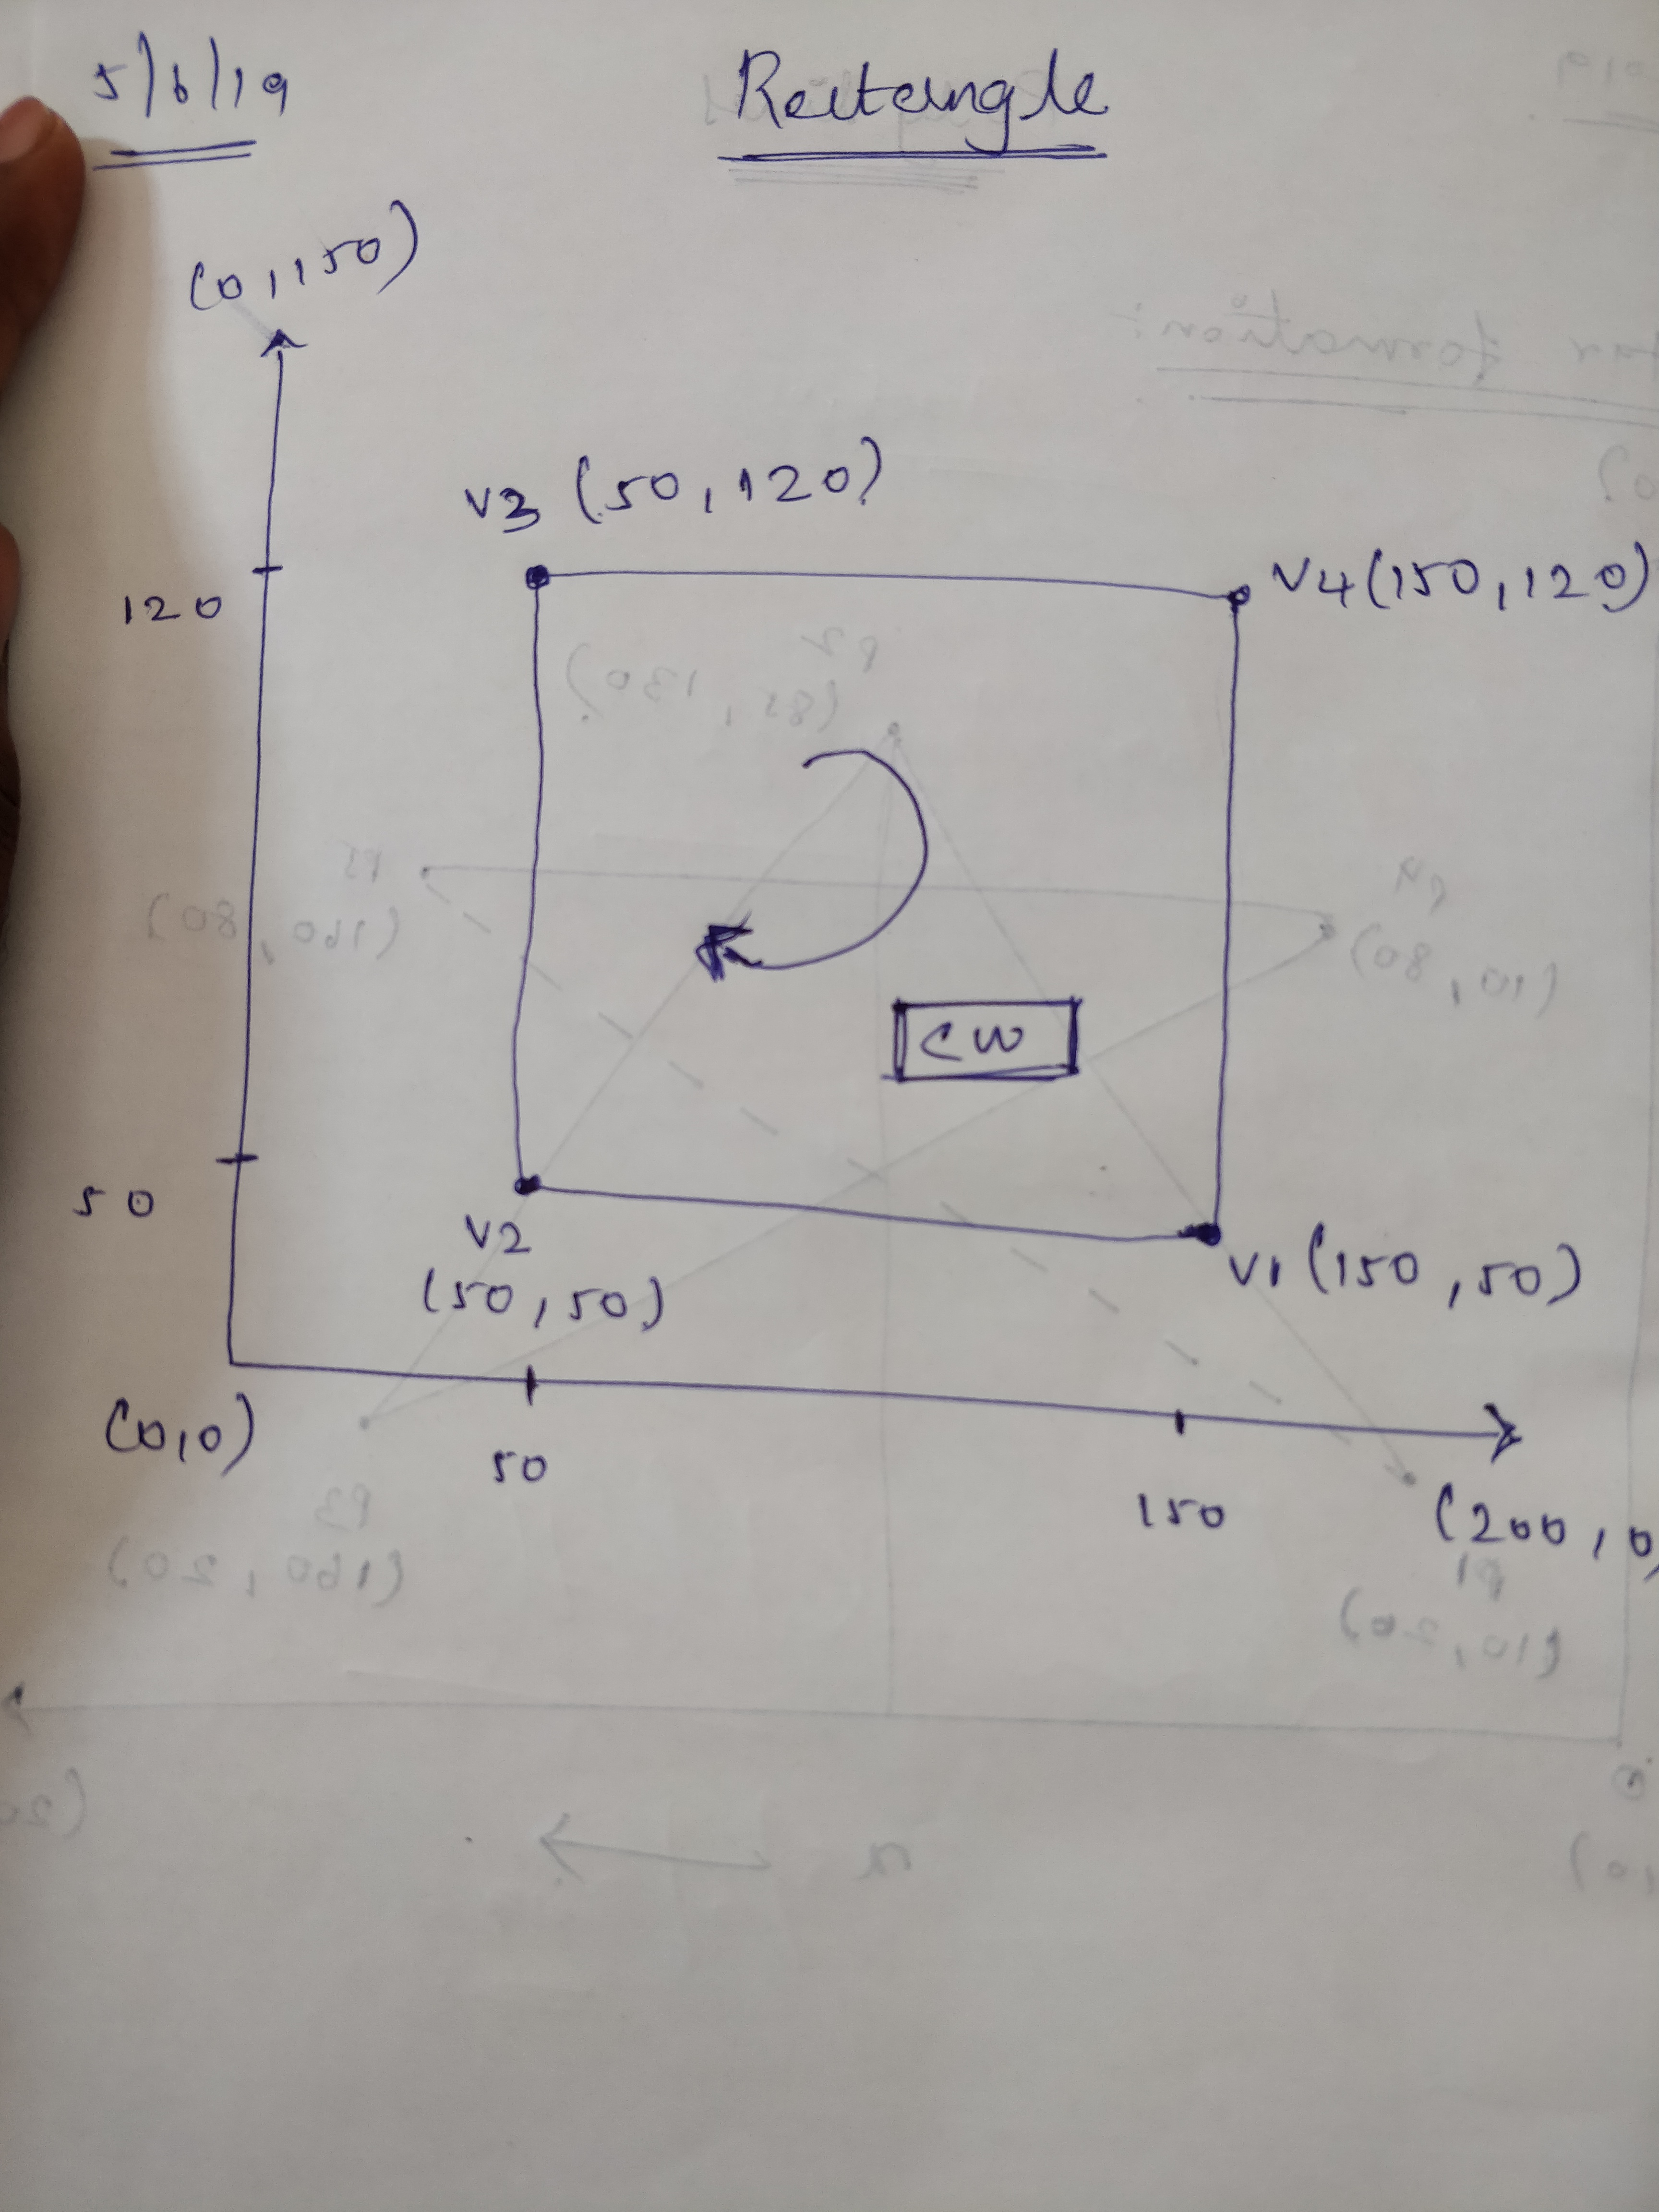 5/6/19
Rectangle
(0,150)
V3 (50,120)
V4(150,120)
120
CW
50
V2
(50,50)
V1(150,50)
(0,0)
50
150
(200,0